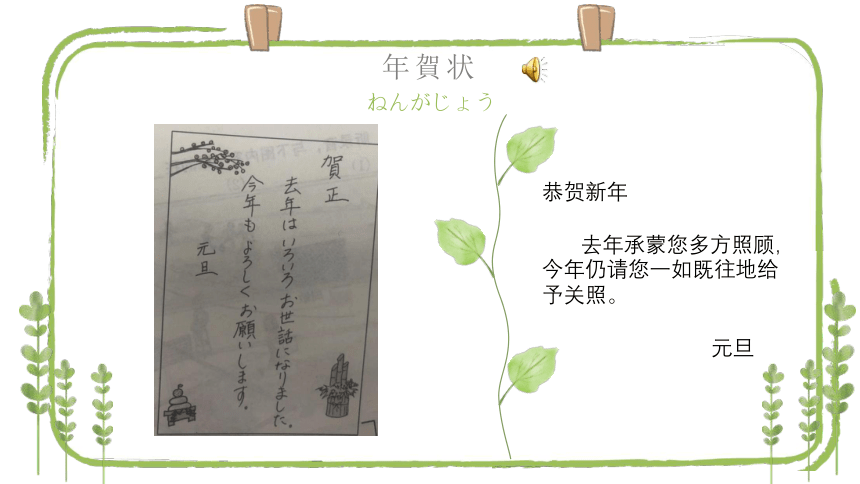 年賀状
ねんがじょう
賀正
去年は いろいろ お世話になりました。
今年も よろしく お願いします。
元旦
恭贺新年
去年承蒙您多方照顾,
今年仍请您一如既往地给
予关照。
元旦